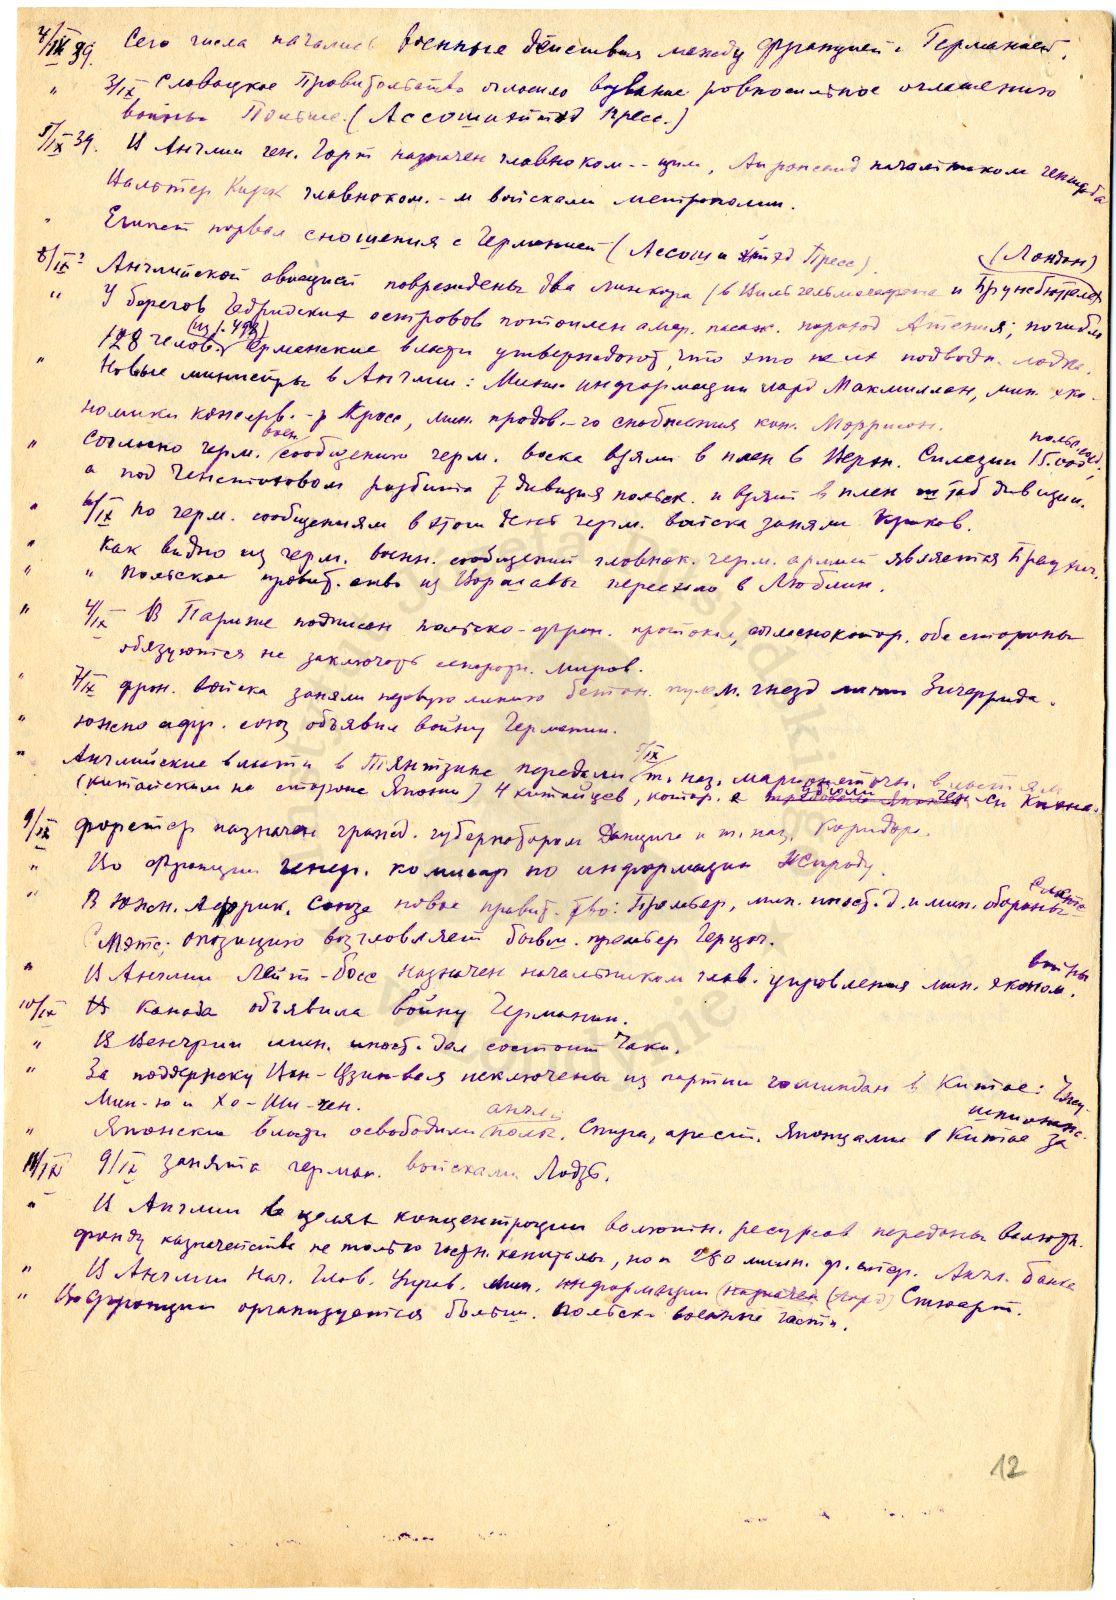 4/IX 39. Сего числа начались военные действия между Францией и Германией.
" 3/IX Словацкое Правительство огласило воззвание равносильное оглашению
войны Польше. (Ассошиэйтэд Пресс.)
5/IX 39. В Англии ген. Горт назначен главноком.--щим, Айронсайд начальником генштаба
Вальтер Кирк главноком.-м войсками метрополии.
" Египет порвал сношения с Германией (Ассошиэйтэд Пресс).
6/IX? Английской авиацией повреждены два линкора (в Вильгельмсгафене и Брунсбюттеле) (Лондон)
" У берегов Гебридских островов потоплен амер. пасаж. пароход Атения; погибли
128 человек (из 1.498) Германские власти утверждают, что это не их подводн. лодка.
" Новые министры в Англии: Мин. информации лорд Макмиллан, мин. эко-
номики консерв.-р Кросс, мин. продов.-го снабжения кон. Моррисон.
" Согласно герм. воен. сообщению герм. войска взяли в плен в Верхн. Силезии 15.000 польск. солд.,
а под Ченстоховом разбита 7 дивизия польск. и взят в плен штаб дивизии.
" 6/IX По герм. сообщениям в этот день герм. войска заняли Краков.
" Как видно из герм. воен. сообщений главнок. герм. армией является Браухич.
" " Польское правит.-ство из Варшавы переехало в Люблин.
" 4/IX В Париже подписан польско-фран. протокол, согласно котор. обе стороны
обязуются не заключать сепаратн. миров.
" 7/IX фран. войска заняли первую линию бетон. пулем. гнезд линии Зигфрида.
" Южно афр. союз объявил войну Германии.
" Английские власти в Тянтзине передали 5/IX т. наз. марионеточн. властям
(китайским на стороне Японии) 4 китайцев, котор.
9/IX Форстер назначен гражд. губернатором Данцига и т. наз. Коридора.
" Во Франции генер. комисар по информации Жироду.
" В Южн. Африк. Союзе новое правит.-тво: Премьер, мин. иност. д. и мин. обороны Смэтс
Смэтс; опозицию возглавляет бывш. премьер Герцог.
" В Англии Лейт-Росс назначен начальником глав. управления мин. эконом. войны.
10/IX Канада объявила войну Германии.
" В Венгрии мин. иност. дел состоит Чаки.
" За поддержку Ван-Цзин-вея исключены из партии гоминдан в Китае: Чжу-
Мин-ю и Хо-Ши-чен.
" Японские власти освободили англ. полк. Спира, арест. Японцами в Китае за шпионаж.
11/IX 9/IX занята герман. войсками Лодзь.
" В Англии в целях концентрации валютн. ресурсов переданы валютн.
фонду казначейства не только частн. капиталы, но и 280 милл. ф. стер. Англ. банка
" В Англии нач. Глав. Управ. мин. информации назначен (лорд) Стюарт.
" Во Франции организуются больш. польские военные части.
12